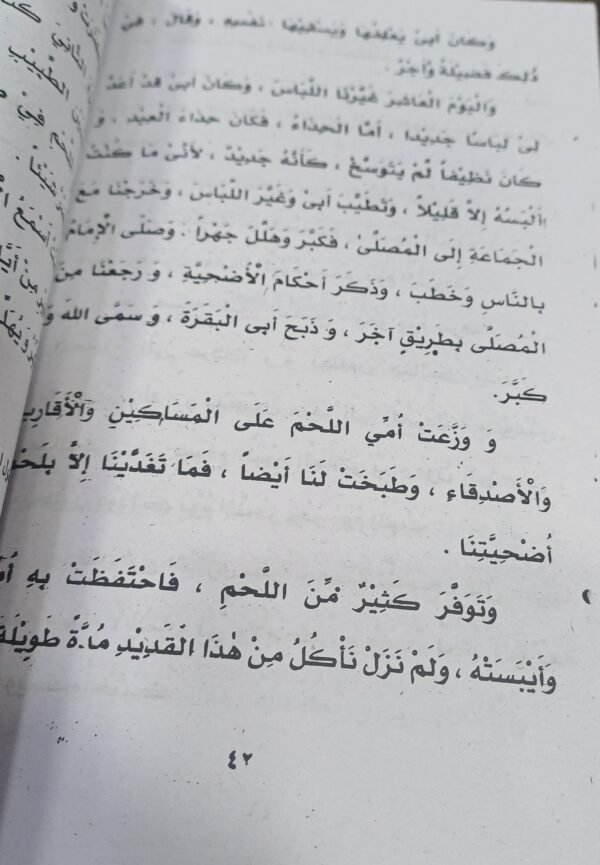 وَكَانَ أَبِيْ يَعْلِفُهَا وَيَسْقِيْهَا بِنَفْسِهِ ، وَقَالَ ، فِيْ
ذٰلِكَ فَضِيْلَةٌ وَأَجْرٌ .
وَالْيَوْمَ الْعَاشِرَ غَيَّرْنَا اللِّبَاسَ ، وَكَانَ أَبِىْ قَدْ أَعَدَّ
لِىْ لِبَاسًا جَدِيْدا ، أَمَّا الْحِذَاءُ ، فَكَانَ حِذَاءَ الْعِيْدِ ، وَ
كَانَ نَظِيْفاً لَمْ يَتَوَسَّخْ ، كَأَنَّهُ جَدِيْدٌ ، لأَنِّىْ مَا كُنْتُ
أَلْبَسُهُ إِلاَّ قَلِيْلاً ، وَتَطَيَّبَ أَبِىْ وَغَيَّرَ اللِّبَاسَ ، وَخَرَجْنَا مَعَ
الْجَمَاعَةِ إِلَى الْمُصَلَّىْ ، فَكَبَّرَ وَهَلَّلَ جَهْراً . وَصَلَّى الْإِمَامُ
بِالنَّاسِ وَخَطَبَ ، وَذَكَرَ أَحْكَامَ الْأُضْحِيَّةِ ، وَ رَجَعْنَا مِنَ
الْمُصَلَّى بِطَرِيْقٍ آخَرَ ، وَ ذَبَحَ أَبِى الْبَقَرَةَ ، وَ سَمَّى اللهَ وَ
كَبَّرَ.
وَ وَزَّعَتْ أُمِّي اللَّحْمَ عَلَى الْمَسَاكِيْنِ وَالْأَقَارِبِ
وَالْأَصْدِقَاءِ ، وَطَبَخَتْ لَنَا أَيْضاً ، فَمَا تَغَدَّيْنَا إِلاَّ بِلَحْمِ
أُضْحِيَّتِنَا .
وَتَوَفَّرَ كَثِيْرٌ مِّنَ اللَّحْمِ ، فَاحْتَفَظَتْ بِهِ
وَأَيْبَسَتْهُ ، وَلَمْ نَزَلْ نَأْكُلُ مِنْ هٰذَا الْقَدِيْدِ مُدَّةً طَوِيْلَةً
٤٢